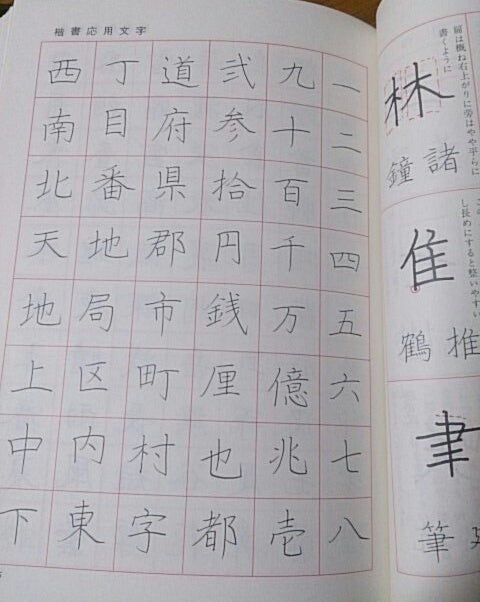 楷書応用文字
一二三四五六七八
九十百千万億兆壱
弐参拾円銭厘也都
道府県郡市町村字
丁目番地局区内東
西南北天地上中下
扁は概ね右上がりに旁はやや平らに
書くように
林
諸
鐘
し長めにすると整いやすい
隹
推
鶴
聿
筆